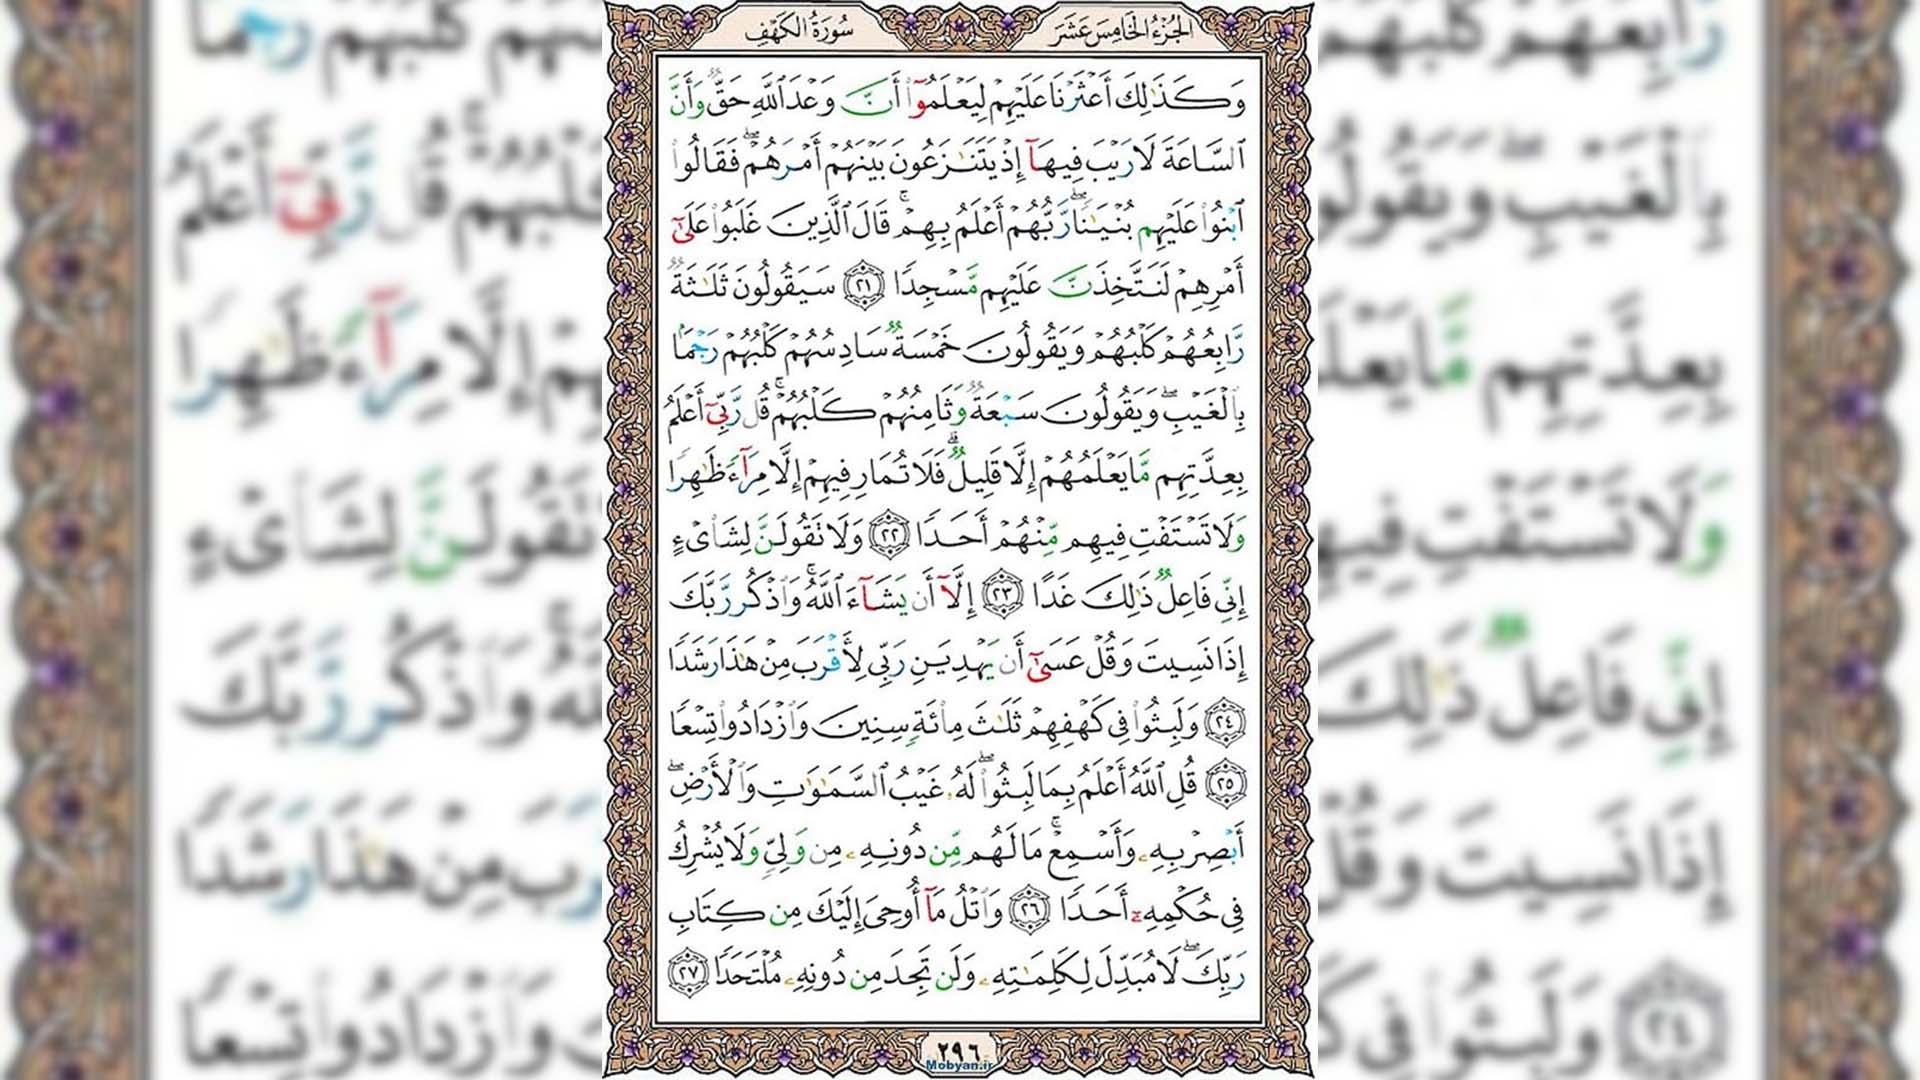 الجُزْءُ الخَامِسَ عَشَرَ
سُورَةُ الكَهْفِ
وَكَذَٰلِكَ أَعْثَرْنَا عَلَيْهِمْ لِيَعْلَمُوٓا۟ أَنَّ وَعْدَ ٱللَّهِ حَقٌّ وَأَنَّ
ٱلسَّاعَةَ لَا رَيْبَ فِيهَآ إِذْ يَتَنَـٰزَعُونَ بَيْنَهُمْ أَمْرَهُمْ ۖ فَقَالُوا۟
ٱبْنُوا۟ عَلَيْهِم بُنْيَـٰنًا ۖ رَّبُّهُمْ أَعْلَمُ بِهِمْ ۚ قَالَ ٱلَّذِينَ غَلَبُوا۟ عَلَىٰٓ
أَمْرِهِمْ لَنَتَّخِذَنَّ عَلَيْهِم مَّسْجِدًا ٢١ سَيَقُولُونَ ثَلَـٰثَةٌ
رَّابِعُهُمْ كَلْبُهُمْ وَيَقُولُونَ خَمْسَةٌ سَادِسُهُمْ كَلْبُهُمْ رَجْمًا
بِٱلْغَيْبِ ۖ وَيَقُولُونَ سَبْعَةٌ وَثَامِنُهُمْ كَلْبُهُمْ ۚ قُل رَّبِّىٓ أَعْلَمُ
بِعِدَّتِهِم مَّا يَعْلَمُهُمْ إِلَّا قَلِيلٌ ۗ فَلَا تُمَارِ فِيهِمْ إِلَّا مِرَآءً ظَـٰهِرًا
وَلَا تَسْتَفْتِ فِيهِم مِّنْهُمْ أَحَدًا ٢٢ وَلَا تَقُولَنَّ لِشَا۟ىْءٍ
إِنِّى فَاعِلٌ ذَٰلِكَ غَدًا ٢٣ إِلَّآ أَن يَشَآءَ ٱللَّهُ ۚ وَٱذْكُر رَّبَّكَ
إِذَا نَسِيتَ وَقُلْ عَسَىٰٓ أَن يَهْدِيَنِ رَبِّى لِأَقْرَبَ مِنْ هَـٰذَا رَشَدًا
٢٤ وَلَبِثُوا۟ فِى كَهْفِهِمْ ثَلَـٰثَ مِا۟ئَةٍ سِنِينَ وَٱزْدَادُوا۟ تِسْعًا
٢٥ قُلِ ٱللَّهُ أَعْلَمُ بِمَا لَبِثُوا۟ ۖ لَهُۥ غَيْبُ ٱلسَّمَـٰوَٰتِ وَٱلْأَرْضِ ۖ
أَبْصِرْ بِهِۦ وَأَسْمِعْ ۚ مَا لَهُم مِّن دُونِهِۦ مِن وَلِىٍّ وَلَا يُشْرِكُ
فِى حُكْمِهِۦٓ أَحَدًا ٢٦ وَٱتْلُ مَآ أُوحِىَ إِلَيْكَ مِن كِتَابِ
رَبِّكَ ۖ لَا مُبَدِّلَ لِكَلِمَـٰتِهِۦ وَلَن تَجِدَ مِن دُونِهِۦ مُلْتَحَدًا ٢٧
٢٩٦
Mobyan.ir